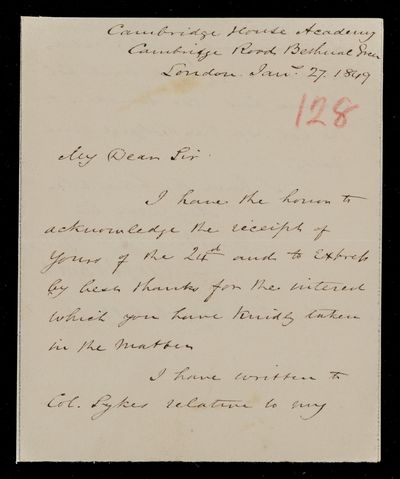 Cambridge House Academy
Cambridge Road Bethnal Green
London Jany. 27. 1849
128
My Dear Sir
I have the honor to
acknowledge the receipt of
yours of the 24th and to express
by best thanks for the interest
which you have kindly taken
in the matter
I have written to
Col. Sykes relative to my